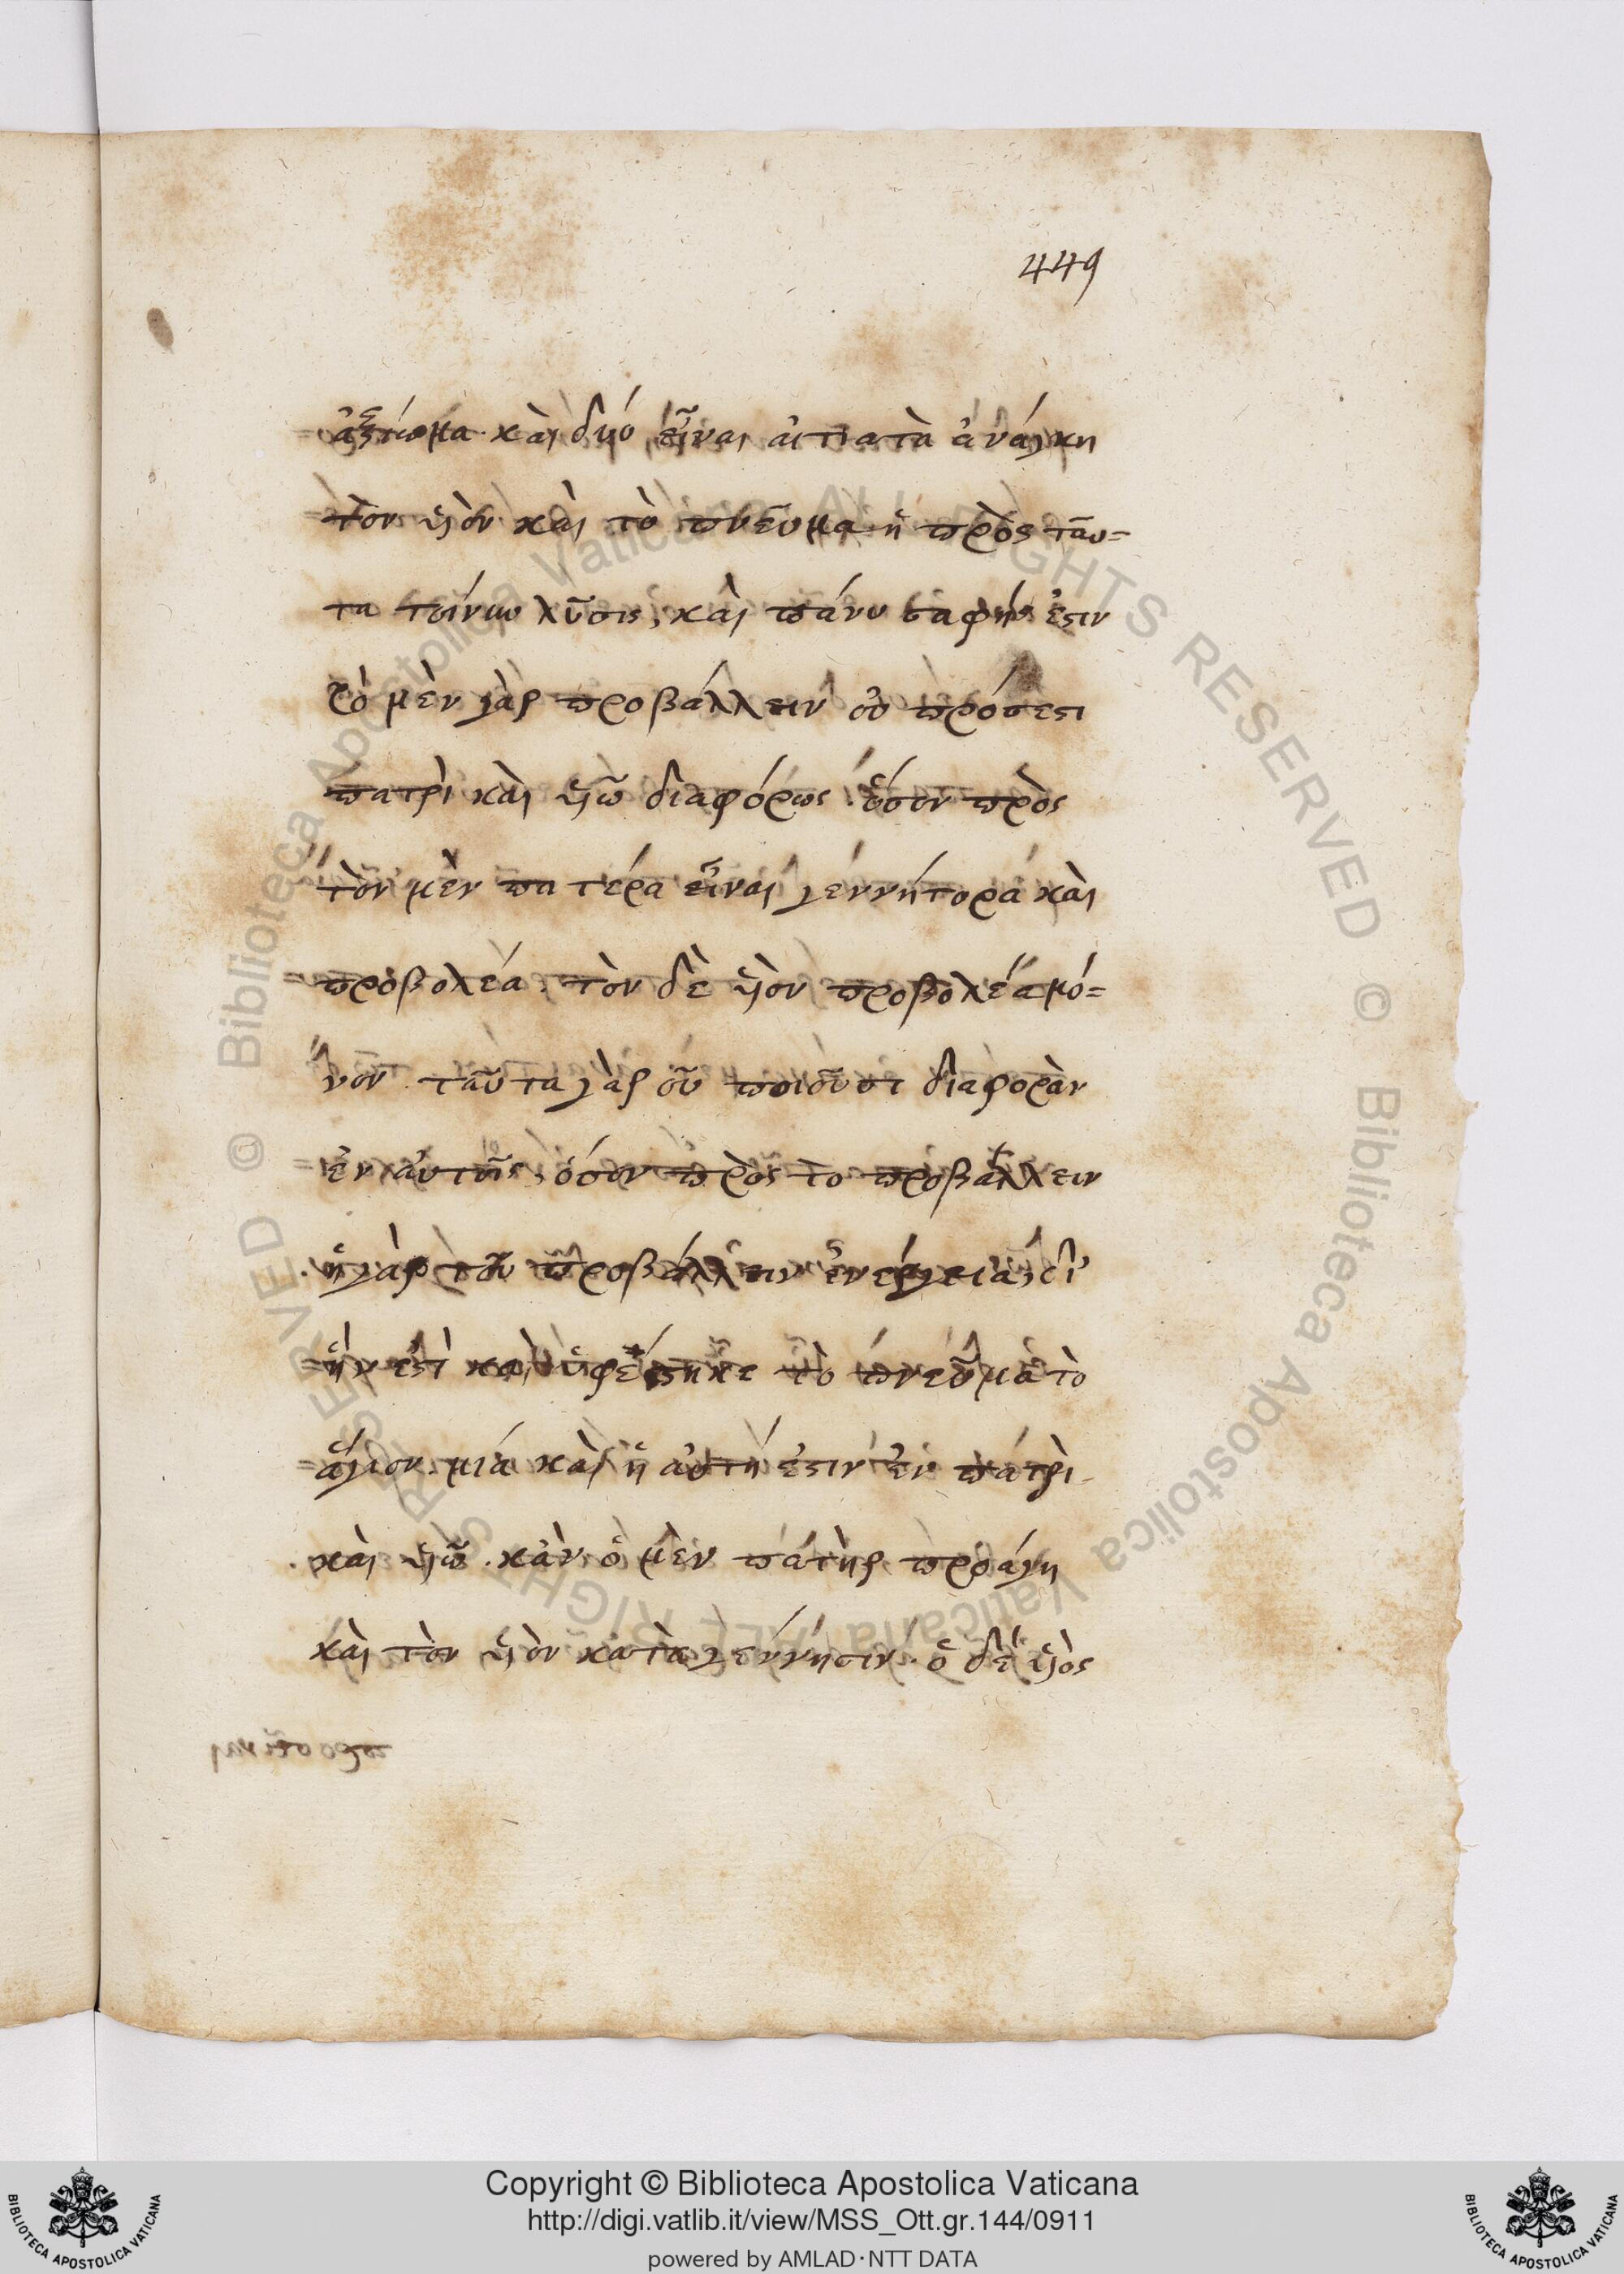 449
ἀξίωμα· καὶ δύο εἶναι αἰτιατὰ ἀνάγκη
τὸν υἱὸν καὶ τὸ πνεῦμα ἡ πρὸς ταυ=
τα τοίνυν λῦσις, καὶ πάνυ σαφής ἐστιν
τὸ μὲν γὰρ προβάλλειν οὐ πρόσεστι
πατρὶ καὶ υἱῶ διαφόρως· ὅσον πρὸς
τὸν μὲν πατέρα εἶναι γεννήτορα καὶ
προβολέα. τὸν δὲ υἱὸν προβολέα μό=
νον. ταῦτα γὰρ οὐ ποιοῦσι διαφορὰν
ἐν αὐτοῖς, ὅσον πρὸς το προβάλλειν
ἡ γὰρ τοῦ προβάλλειν ἐνέργεια, δι'
ἥν ἐστὶ καὶ ὑφέστηκε τὸ πνεῦμα τὸ
ἅγιον. μιά καὶ ἡ αὐτή ἐστιν ἐν πατρὶ
καὶ υἱῶ. κἀν ὁ μὲν πατὴρ προάγη
καὶ τὸν υἱὸν κατὰ γέννησιν. ὁ δὲ υἱὸς
Biblioteca Apostolica Vaticana ALL RIGHTS RESERVED ©
Biblioteca Apostolica Vaticana ALL RIGHTS RESERVED ©
BIBLIOTECA APOSTOLICA VATICANA
Copyright © Biblioteca Apostolica Vaticana
http://digi.vatlib.it/view/MSS_Ott.gr.144/0911
powered by AMLAD·NTT DATA
BIBLIOTECA APOSTOLICA VATICANA